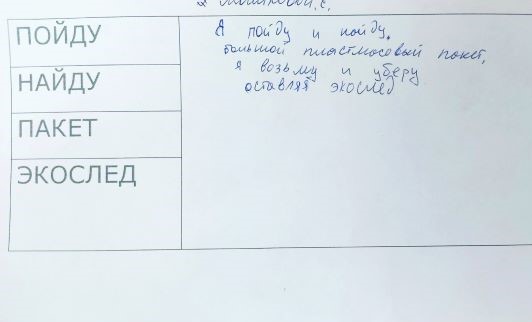 ПОЙДУ
НАЙДУ
ПАКЕТ
ЭКОСЛЕД
Я пойду и найду,
большой пластмасовый пакет,
я возьму и уберу
оставляя экослед